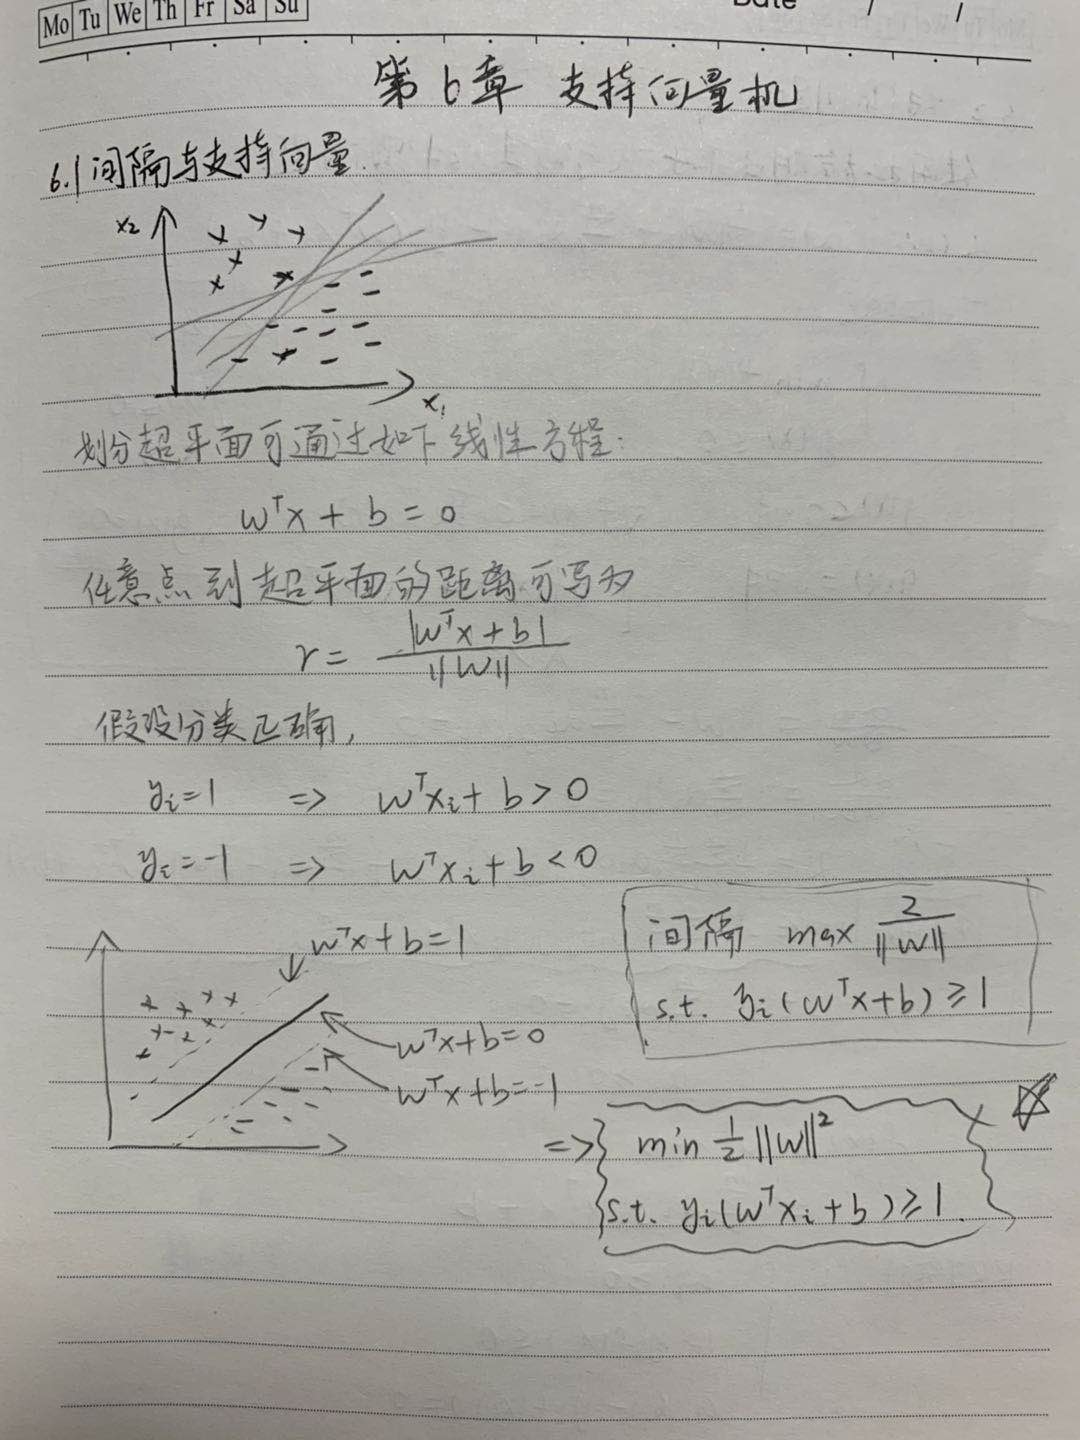 Mo Tu We Th Fr Sa Su Date / /
第6章 支持向量机
6.1 间隔与支持向量.
x₂
x₁
划分超平面可通过如下线性方程:
wᵀx + b = 0
任意点到超平面的距离可写为
r = |wᵀx + b| / ||w||
假设分类正确,
yᵢ=1 => wᵀxᵢ + b > 0
yᵢ=-1 => wᵀxᵢ + b < 0
wᵀx + b = 1
wᵀx + b = 0
wᵀx + b = -1
间隔 max 2 / ||w||
s.t. yᵢ(wᵀx+b) ≥ 1
=> min ½ ||w||²
s.t. yᵢ(wᵀxᵢ + b) ≥ 1.